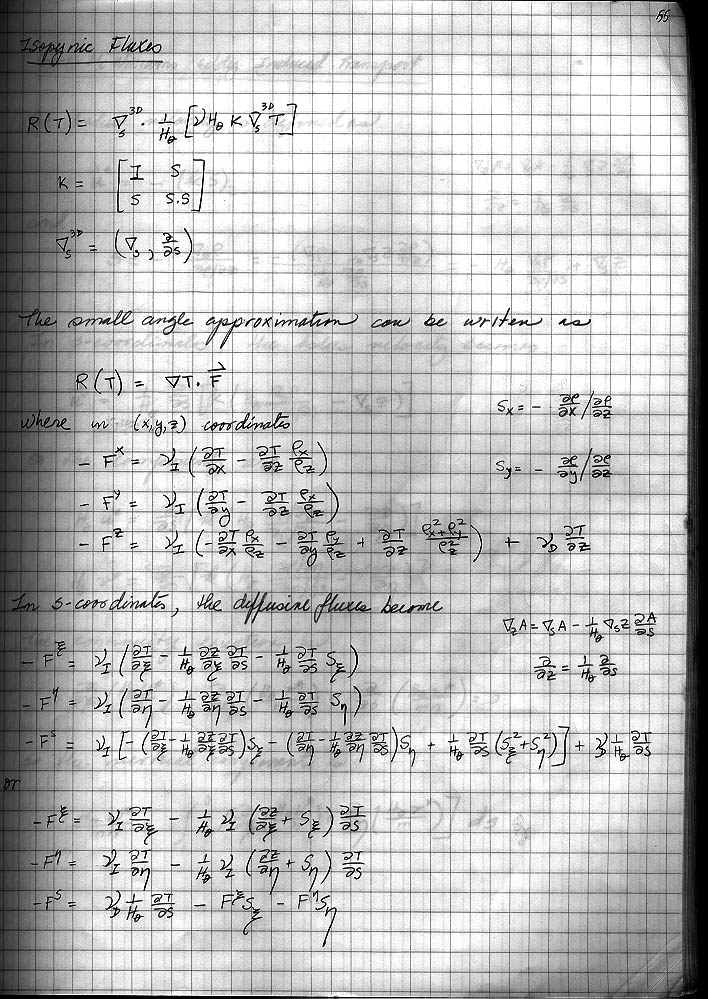 56
Isopynic Fluxes
R(T) = ∇_S^{3D} · 1/H_θ [νH_θ K ∇_S^{3D} T]
K = [I S; S S.S]
∇_S^{3D} = (∇_S, ∂/∂s)
The small angle approximation can be writen as
R(T) = ∇T · F⃗
S_x = - ∂ρ/∂x / ∂ρ/∂z
where in (x,y,z) coordinates
- F^x = ν_I (∂T/∂x - ∂T/∂z ρ_x/ρ_z)
S_y = - ∂ρ/∂y / ∂ρ/∂z
- F^y = ν_I (∂T/∂y - ∂T/∂z ρ_x/ρ_z)
- F^z = ν_I (-∂T/∂x ρ_x/ρ_z - ∂T/∂y ρ_y/ρ_z + ∂T/∂z (ρ_x^2+ρ_y^2)/ρ_z^2) + ν_D ∂T/∂z
In s-coordinates, the diffusive fluxes become
∇_z A = ∇_S A - 1/H_θ ∇_S z ∂A/∂s
- F^ξ = ν_I (∂T/∂ξ - 1/H_θ ∂z/∂ξ ∂T/∂s - 1/H_θ ∂T/∂s S_ξ)
∂/∂z = 1/H_θ ∂/∂s
- F^η = ν_I (∂T/∂η - 1/H_θ ∂z/∂η ∂T/∂s - 1/H_θ ∂T/∂s S_η)
- F^s = ν_I [-(∂T/∂ξ - 1/H_θ ∂z/∂ξ ∂T/∂s) S_ξ - (∂T/∂η - 1/H_θ ∂z/∂η ∂T/∂s) S_η + 1/H_θ ∂T/∂s (S_ξ^2 + S_η^2)] + ν_D 1/H_θ ∂T/∂s
or
- F^ξ = ν_I ∂T/∂ξ - 1/H_θ ν_I (∂z/∂ξ + S_ξ) ∂T/∂s
- F^η = ν_I ∂T/∂η - 1/H_θ ν_I (∂z/∂η + S_η) ∂T/∂s
- F^s = ν_D 1/H_θ ∂T/∂s - F^ξ S_ξ - F^η S_η